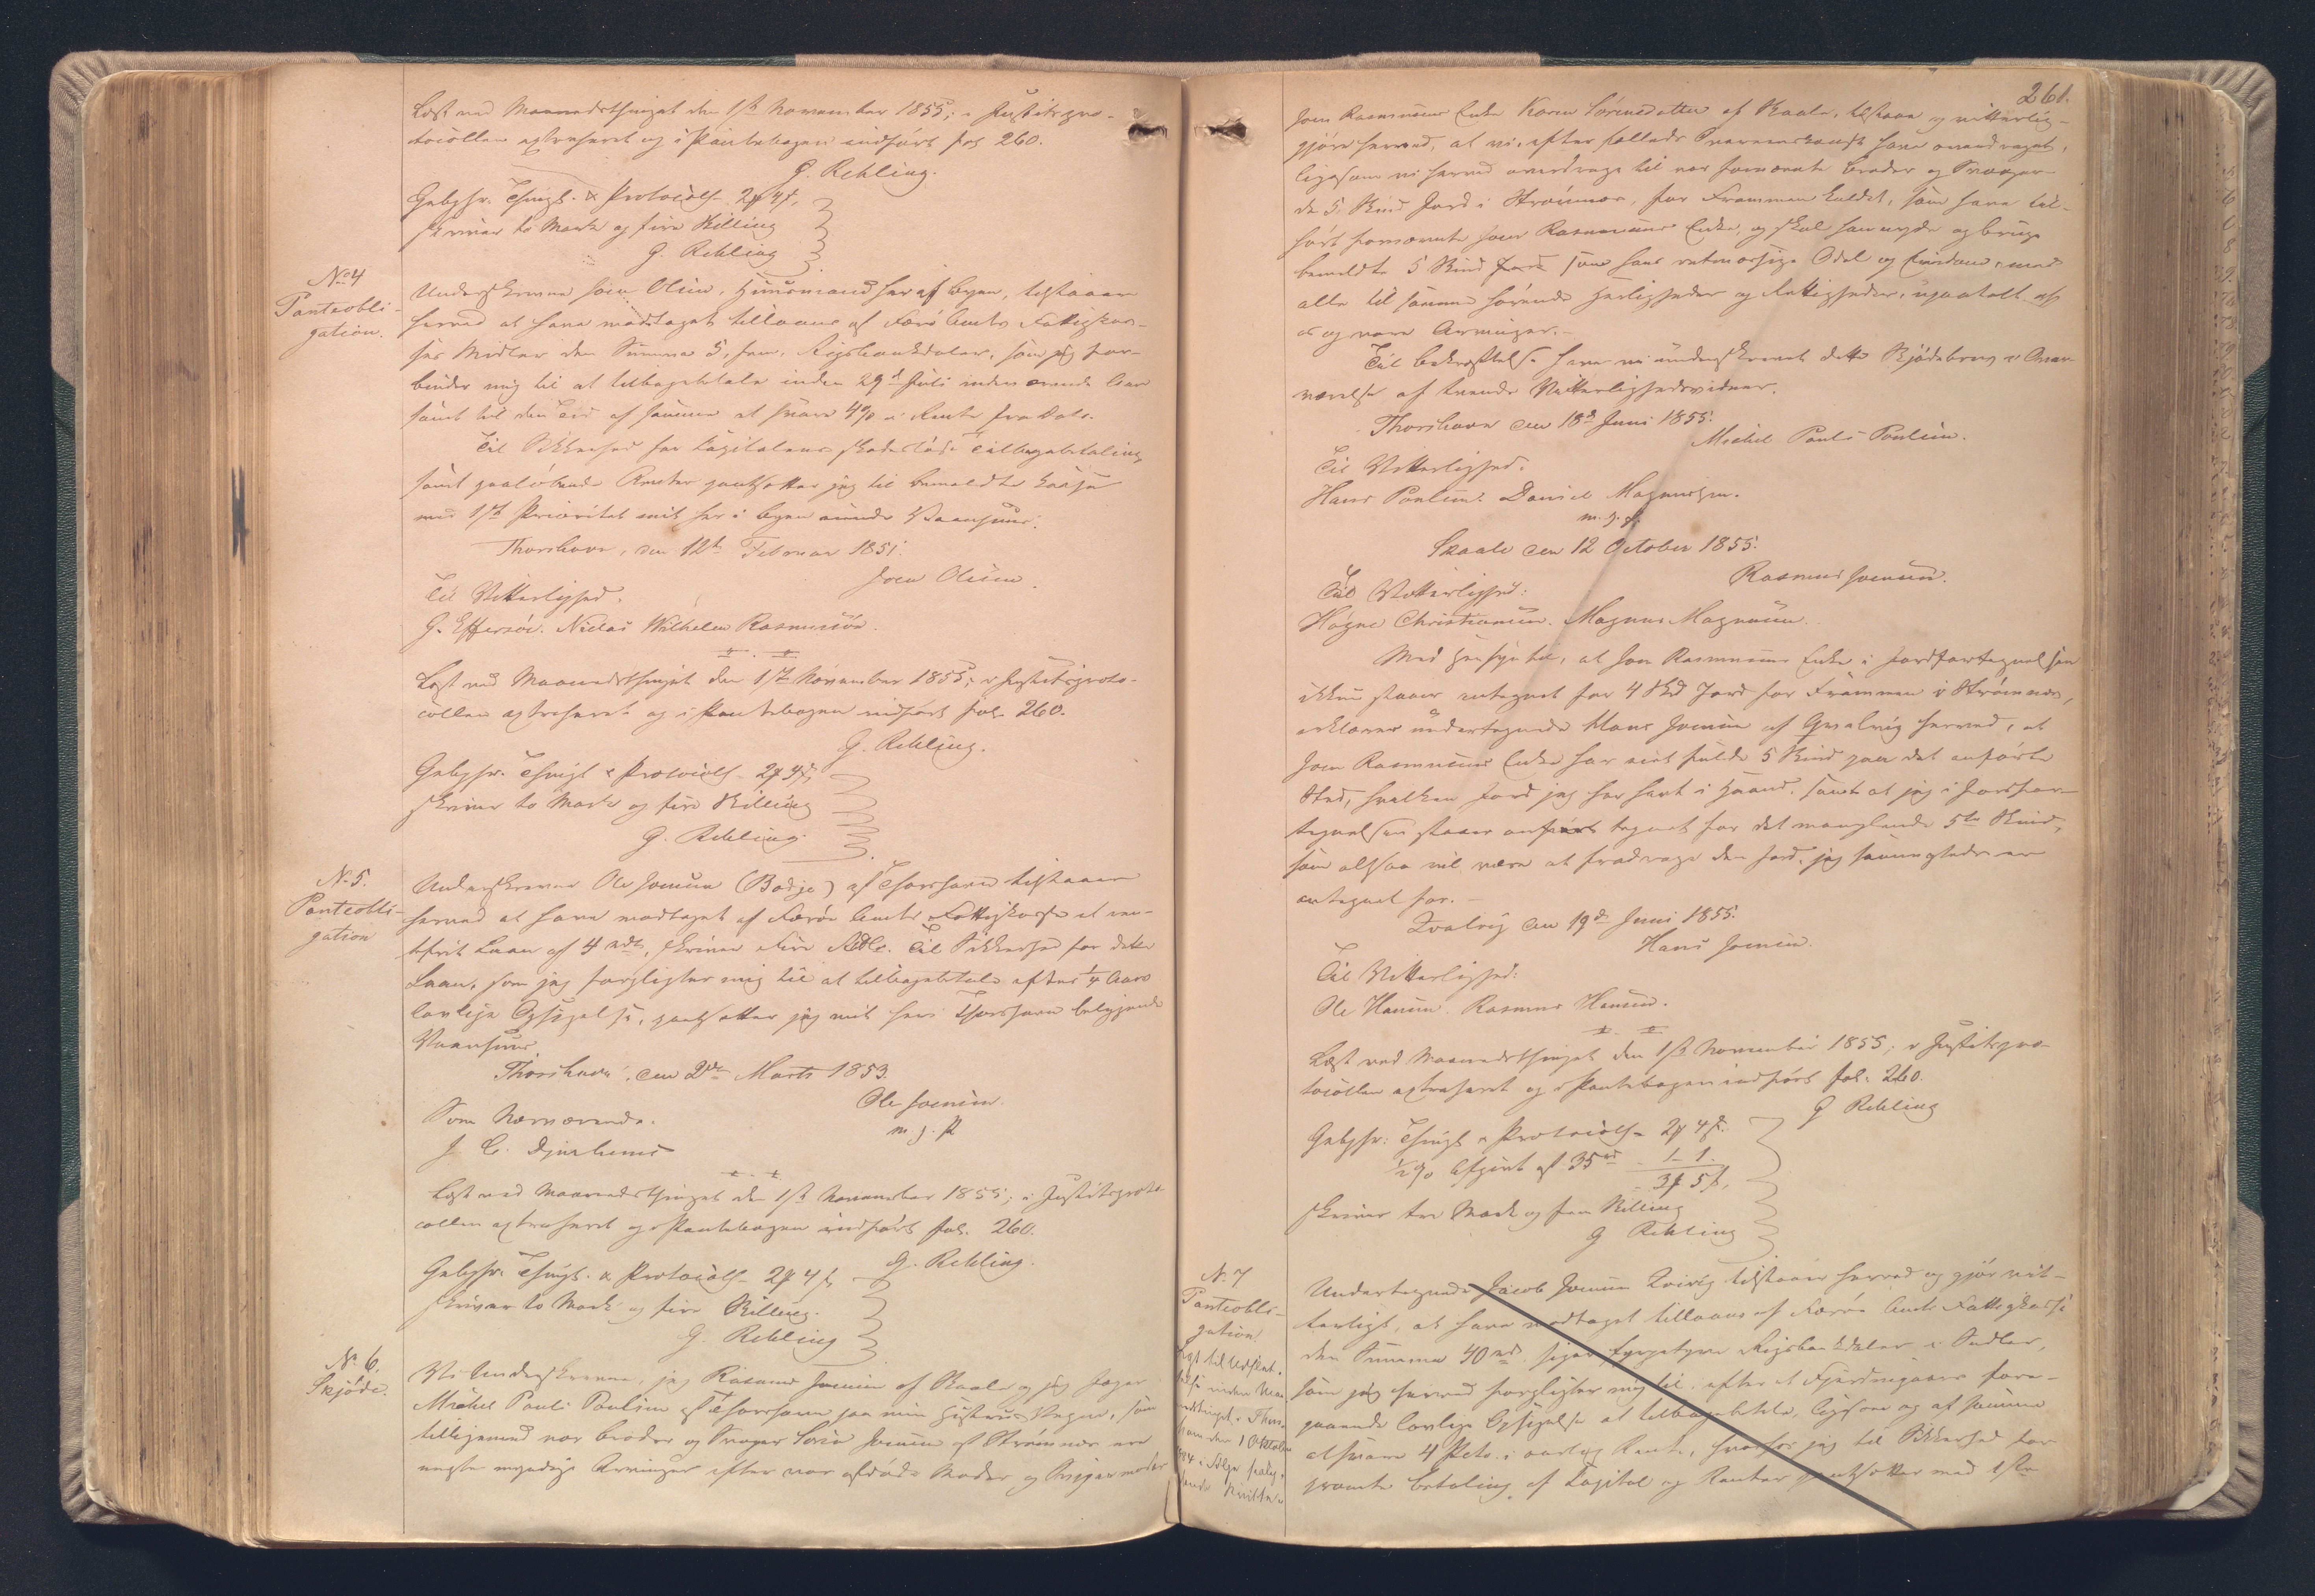 Læst ved Maanedsthinget den 1ste November 1855; i Justitspro-
tocollen extraheret og i Pantebogen indført fol 260.
G. Rehling.
Gebyhr. Thingl. & Protocoll. 2 # 4 ß,
skriver to Mark og fire Skilling
G. Rehling
No 4
Panteobli-
gation.
Underskrevne Joen Olsen, Huusmand her af Byen, tilstaaer
herved at have modtaget tillaans af Færø Amts Fattigkas-
ses Midler den Summa 5, fem, Rigsbankdaler, som jeg for-
binder mig til at tilbagebetale inden 29de Juli inden
samt til den Tid af samme at svare 4 % i Rente fra Dato.
Til Sikkerhed for Capitalens skadesløse Tilbagebetaling,
samt paaløbende Renter pantsætter jeg til bemeldte Casse
med 1ste Prioritet mit her i Byen Vaanhuus.
Thorshavn, den 12te Februar 1851.
Joen Olsen.
Til Vitterlighed.
G. Effersøe. Niclas Wilhelm Rasmussen.
Læst ved Maanedsthinget den 1ste November 1855; i Justitsproto-
collen extraheret og i Pantebogen indført fol. 260.
G. Rehling.
Gebyhr. Thingl. & Protocoll. 2 # 4 ß,
skriver to Mark og fire Skilling
G. Rehling
No 5.
Panteobli-
gation
Underskrevne Ole Joensen (Bodje) af Thorshavn tilstaaer
herved at have modtaget af Færøe Amts Fattigkasse et ren-
tefrit Laan af 4 rdl, skriver fire Rdlr. Til Sikkerhed for dette
Laan, som jeg forpligter mig til at tilbagebetale efter 1/4 Aars
lovlige Opsigelse, pantsætter jeg mit her i Thorshavn beliggende
Vaanhuus.
Thorshavn, den 2den Marts 1853.
Ole Joensen.
m. f. P.
Som Nærværende.
J. C. Djurhuus
Læst ved Maanedsthinget den 1ste November 1855; i Justitsproto-
collen extraheret og i Pantebogen indført fol. 260.
G. Rehling.
Gebyhr. Thingl. & Protocoll. 2 # 4 ß
skriver to Mark og fire Skilling.
G. Rehling
No 6.
Skjöde.
Vi Underskrevne, jeg Rasmus Joensen af Skaale og jeg Jæger
Michel Pauli Poulsen af Thorshavn paa min Hustrues Vegne, som
tilligemed vor Broder og Svoger Joensen af Strømnæs ere
eneste myndige Arvinger efter vor afdøde Moder og Svigermoder
261.
Joen Rasmussens Enke Karen Sörensdatter af Skaale, tilstaae og vitterlig-
gjøre herved, at vi efter fælleds Overeenskomst have overdraget,
ligesom vi herved overdrage til vor fornævnte Broder og Svoger
de 5 Skind Jord i Strømnæs, for Frammen kaldet, som have til-
hørt fornævnte Joen Rasmussens Enke, og skal han nyde og bruge
bemeldte 5 Skind Jord som hans retmæssige Odel og Eiendom, med
alle til samme hørende Herligheder og Rettigheder, upaatalt af
os og vore Arvinger.
Til Bekræftelse have vi underskrevet dette Skjødebrev i Over-
værelse af tvende Vitterlighedsvidner.
Thorshavn den 18de Juni 1855.
Michel Pauli Poulsen.
Til Vitterlighed.
Hans Poulsen. Daniel Magnussen.
m. f. P.
Skaale den 12 October 1855.
Rasmus Joensen.
Til Vitterlighed:
Högne Christiansen. Magnus Magnusen
Med Hensyn til, at Joen Rasmussens Enke i Jordfortegnelsen
ikkun staaer antegnet for 4 Skd Jord for Frammen i Strømnæs,
erklærer undertegnede Hans Joensen af Qvalvig herved, at
Joen Rasmussens Enke har eiet fulde 5 Skind paa det anførte
Sted, hvilken Jord jeg har havt i Haand, samt at jeg i Jordfor-
tegnelsen staaer antegnet for det manglende 5te Skind,
som altsaa vil være at fradrage den Jord, jeg sammesteds er
antegnet for.
Qvalvig den 19de Juni 1855.
Hans Joensen.
Til Vitterlighed:
Ole Hansen. Rasmus Hansen.
Læst ved Maanedsthinget den 1ste November 1855; i Justitspro-
tocollen extraheret og i Pantebogen indført fol. 260.
G Rehling
Gebyhr: Thingl & Protocoll. 2 # 4 ß.
1/2 % Afgivt af 35 rd 1 - 1.
3 # 5 ß,
skriver tre Mark og fem Skilling
G Rehling
No 7
Panteobli-
gation
Undertegnede Jacob Joensen tilstaaer herved og gjør vit-
terligt, at have modtaget tillaans af Færøe Amts Fattigkasse
den Summa 40 rd siger fyrgetyve Rigsbankdaler i Sedler,
som jeg herved forpligter mig til, efter et Fjerdingaars fore-
gaaende lovlig Opsigelse at tilbagebetale, ligesom og af samme
at svare 4 Pcto. i aarlig Rente, hvorfor jeg til Sikkerhed for
prompte Betaling af Capital og Renter pantsætter med 1ste